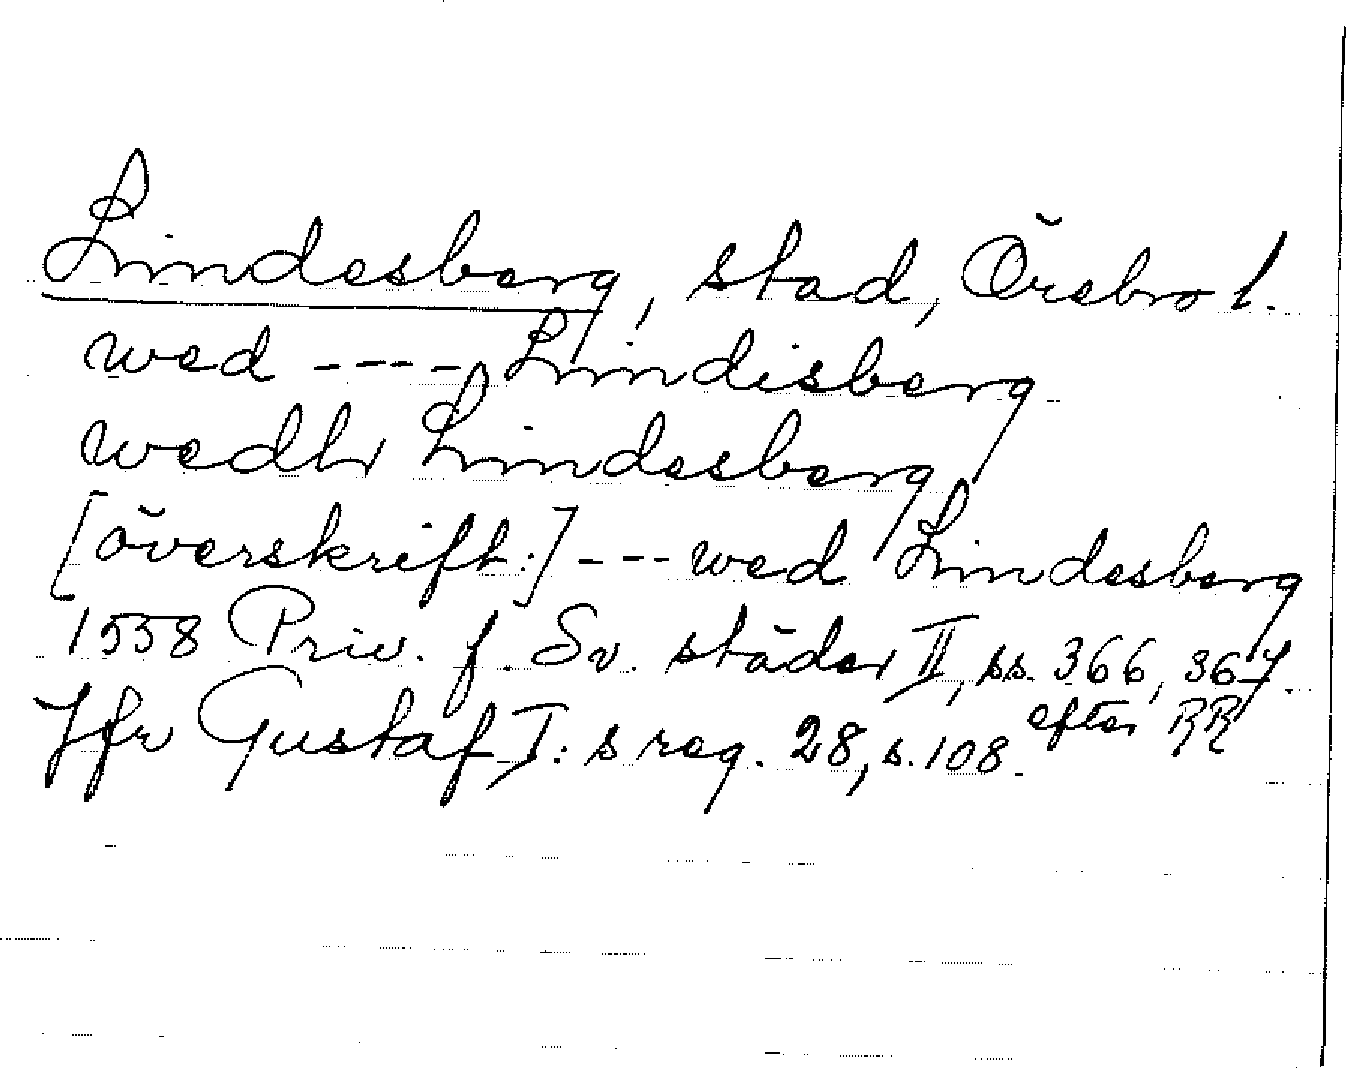 Lindesberg, stad, Örebro l.
wed ---- Lindisberg
wedhr Lindesberg
[överskrift:] --- wed Lindesberg
1558 Priv. f. Sv. städer II, ss. 366, 367.
Jfr Gustaf I: s reg. 28, s. 108. efter RR